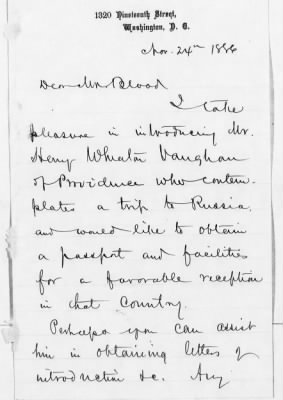 1320 Nineteenth Street,
Washington, D. C.
Nov. 24th 1886
Dear Mr Blood
I take
pleasure in introducing Mr.
Henry Wheaton Vaughan
of Providence who contem-
plates a trip to Russia,
and would like to obtain
a passport and facilities
for a favorable reception
in that Country.
Perhaps you can assist
him in obtaining letters of
introduction &c. Any